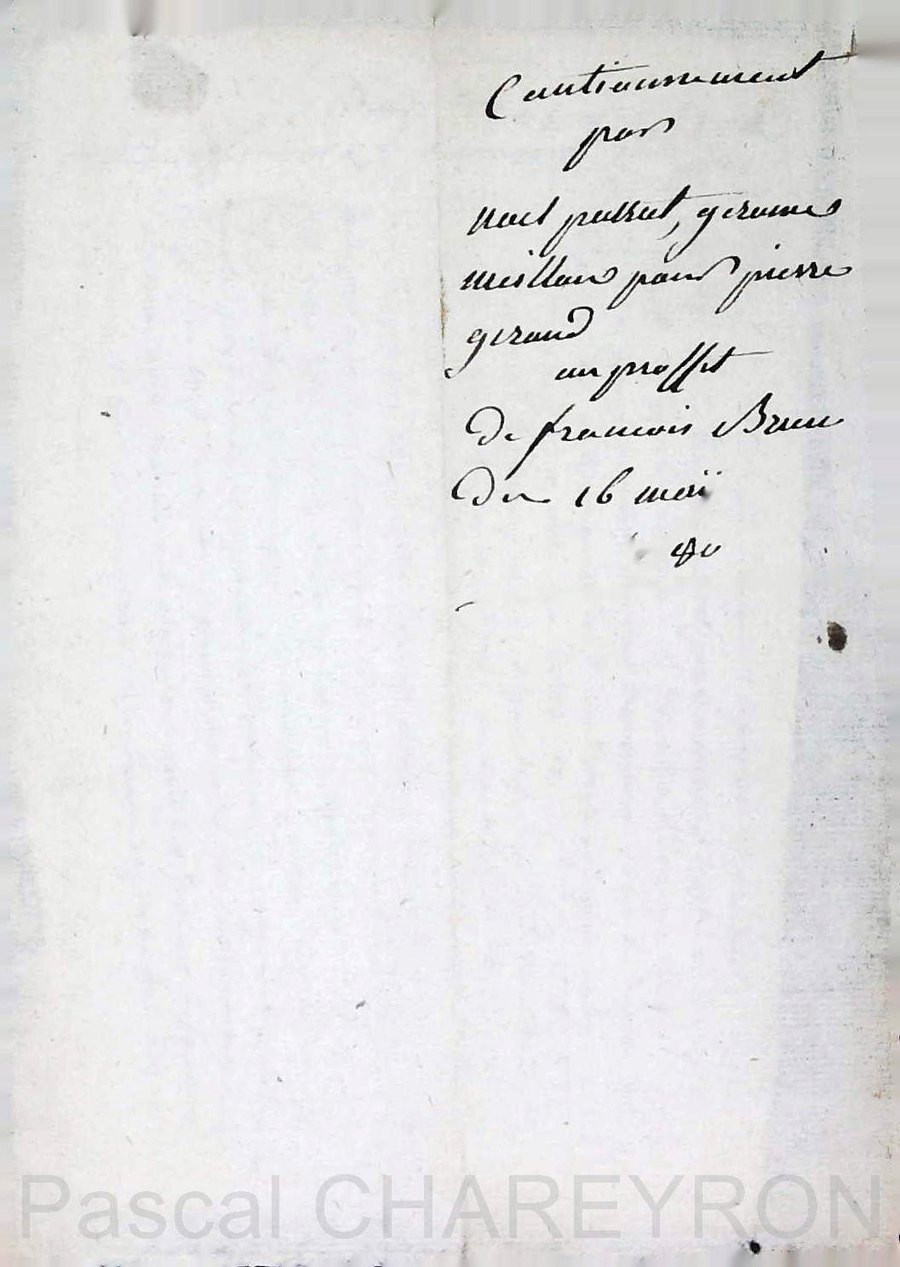 Cautionnement
par
noel passat, gerome
meillan pour pierre
geraud
au proffit
de francois Brun
du 16 maï
Pascal CHAREYRON